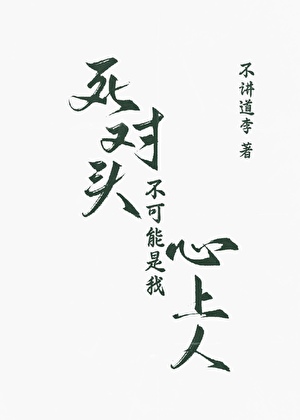 死对头
不可能是我
心上人
不讲道李 著